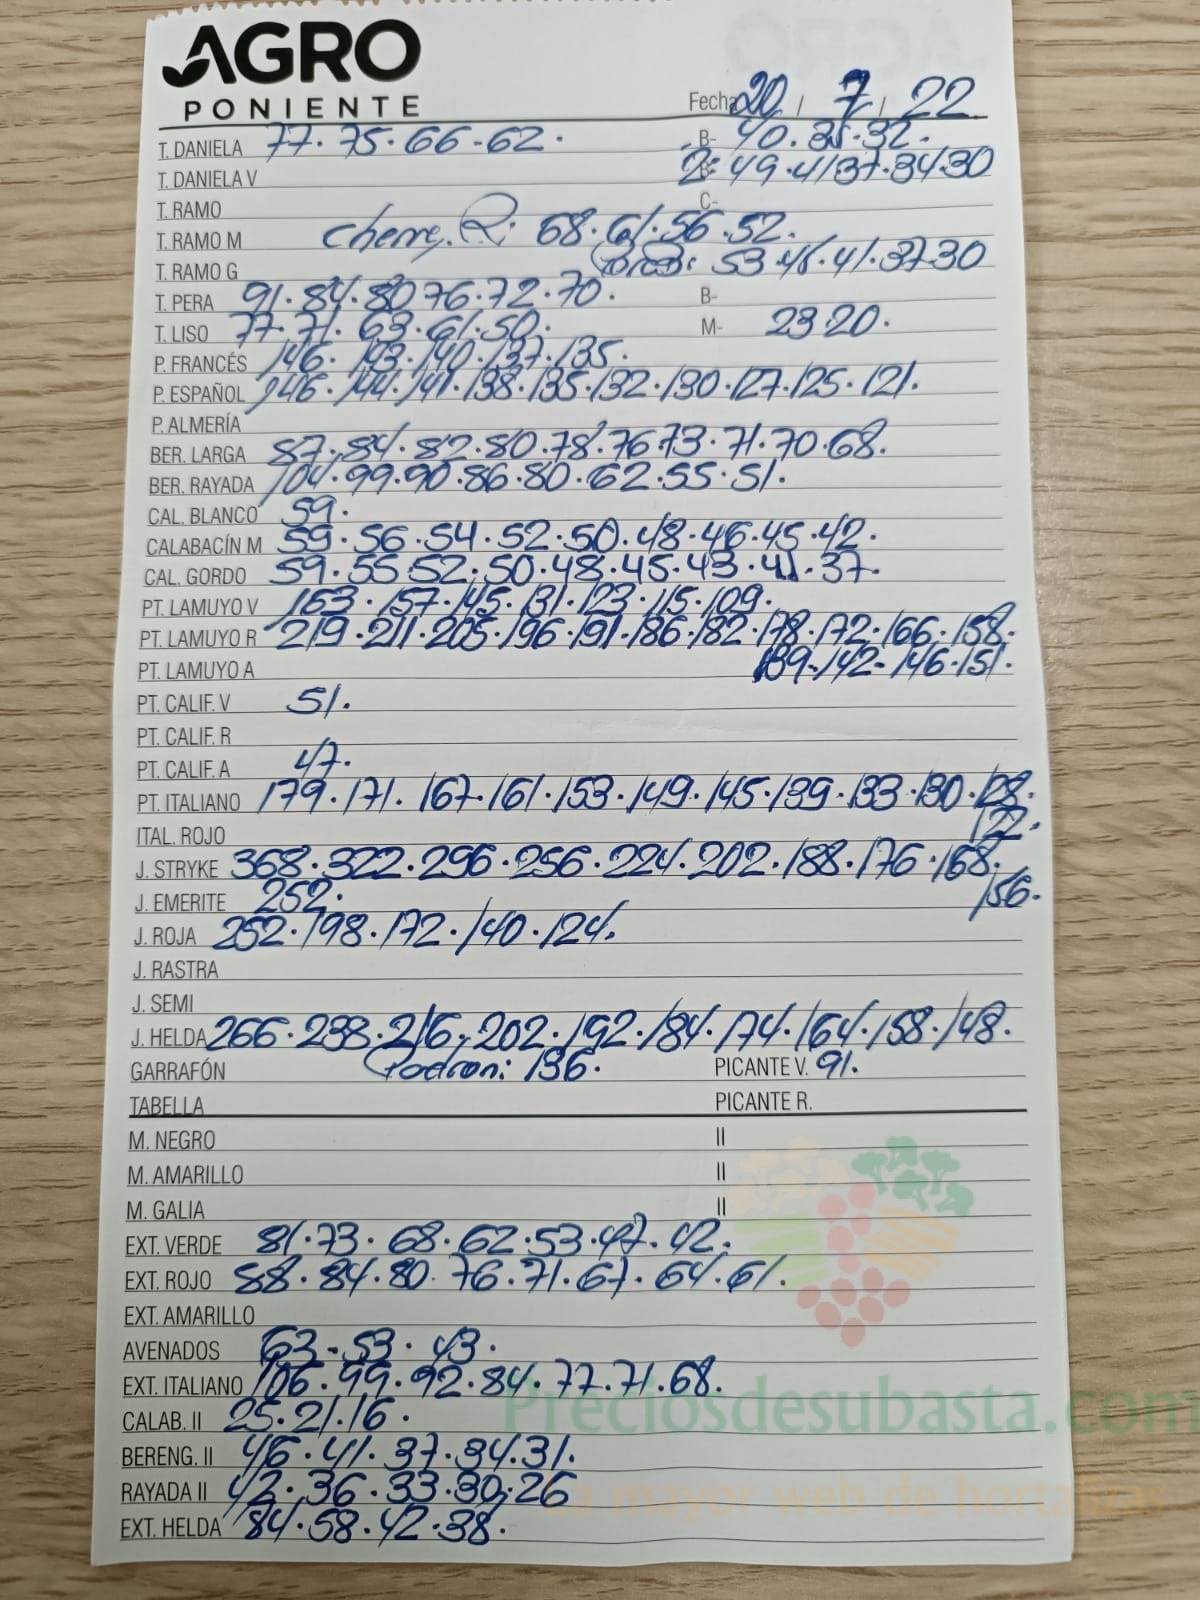 AGRO
PONIENTE
Fecha 20 / 7 / 22
T. DANIELA 77. 75. 66-62. B- 40. 35. 32.
T. DANIELA V 2: 49.41 37.34.30
T. RAMO C-
T. RAMO M Cherry. R: 68. 61. 56. 52.
T. RAMO G 53.46.41.37 30
T. PERA 91. 84. 80 76. 72. 70. B-
T. LISO 77. 71. 63. 61. 50. M- 23 20.
P. FRANCÉS 146. 143. 140. 137. 135.
P. ESPAÑOL 146. 144. 141. 138. 135. 132. 130. 127. 125. 121.
P. ALMERÍA
BER. LARGA 87. 84. 82. 80. 78. 76 73. 71. 70. 68.
BER. RAYADA 104. 99. 90. 86. 80. 62. 55. 51.
CAL. BLANCO 59.
CALABACÍN M 59. 56. 54. 52. 50. 48. 46. 45. 42.
CAL. GORDO 59. 55. 52. 50. 48. 45. 43. 41. 37.
PT. LAMUYO V 163. 157. 145. 131. 123. 115. 109.
PT. LAMUYO R 219. 211. 205. 196. 191. 186. 182. 178. 172. 166. 158.
PT. LAMUYO A 139. 142- 146. 151.
PT. CALIF. V 51.
PT. CALIF. R
PT. CALIF. A 47.
PT. ITALIANO 179. 171. 167. 161. 153. 149. 145. 139. 133. 130. 128.
ITAL. ROJO 122.
J. STRYKE 368. 322. 296. 256. 224. 202. 188. 176. 168.
J. EMERITE 252. 156.
J. ROJA 252. 198. 172. 140. 124.
J. RASTRA
J. SEMI
J. HELDA 266. 238. 216. 202. 192. 184. 174. 164. 158. 148.
GARRAFÓN Padron: 136. PICANTE V. 91.
TABELLA PICANTE R.
M. NEGRO II
M. AMARILLO II
M. GALIA II
EXT. VERDE 81. 73. 68. 62. 53. 47. 42.
EXT. ROJO 88. 84. 80. 76. 71. 67. 64. 61.
EXT. AMARILLO
AVENADOS 63. 53. 43.
EXT. ITALIANO 106. 99. 92. 84. 77. 71. 68.
CALAB. II 25. 21. 16.
Preciosdesubasta.com
BERENG. II 46. 41. 37. 34. 31.
RAYADA II 42. 36. 33. 30. 26
La mayor web de hortalizas
EXT. HELDA 84. 58. 42. 38.